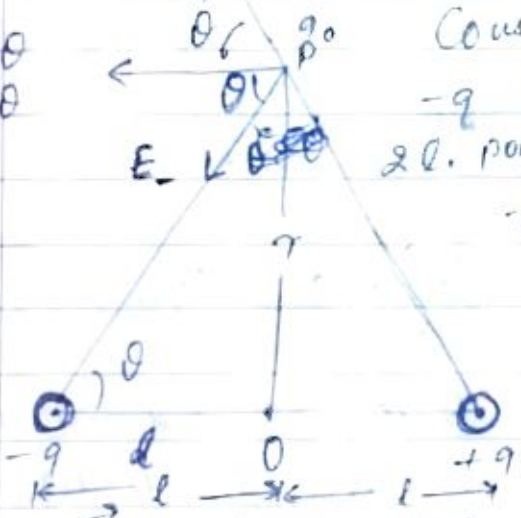 θ
θ
θ
q₀
P
Cous
θ
-q
E_
2l. poi
r
θ
-q
l
O
+q
l
l